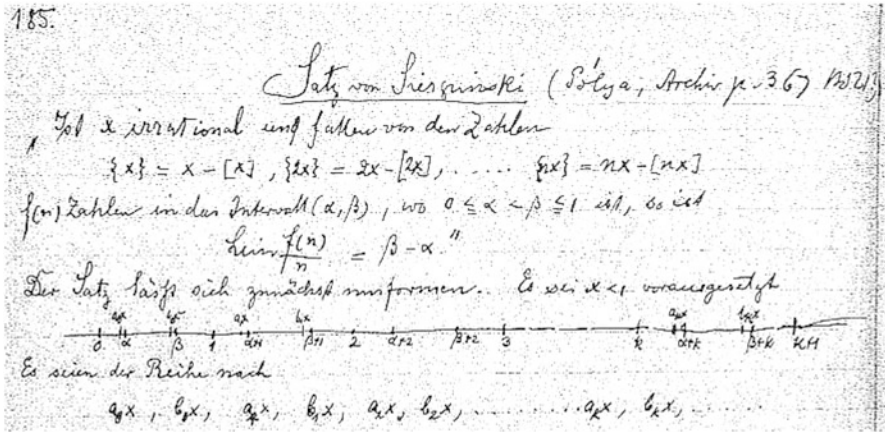 185.
Satz von Sierpinski (Pólya, Archiv p. 367
„Ist x irrational und fallen von den Zahlen
{x} = x - [x], {2x} = 2x - [2x], ..... {nx} = nx - [nx]
f(n) Zahlen in das Intervall (α, β), wo 0 ≦ α < β ≦ 1 ist, so ist
Lim f(n)/n = β - α."
Der Satz läßt sich zunächst umformen. Es sei x < 1 vorausgesetzt
a₀x b₀x a₁x b₁x aₖx bₖx
0 α β 1 α+1 β+1 2 α+2 β+2 3 k α+k β+k k+1
Es seien der Reihe nach
a₀x, b₀x, a₁x, b₁x, a₂x, b₂x, ........ aₖx, bₖx, .......